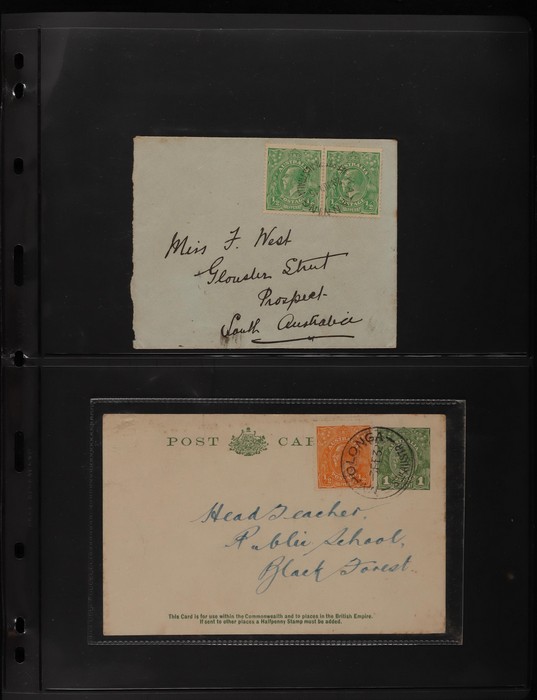 AUSTRALIA AUSTRALIA
Miss F. West
Gloucester Street
Prospect
South Australia
POST CAR
OLONGA
1 1
Head Teacher,
Public School,
Black Forest
This Card is for use within the Commonwealth and to places in the British Empire.
If sent to other places a Halfpenny Stamp must be added.